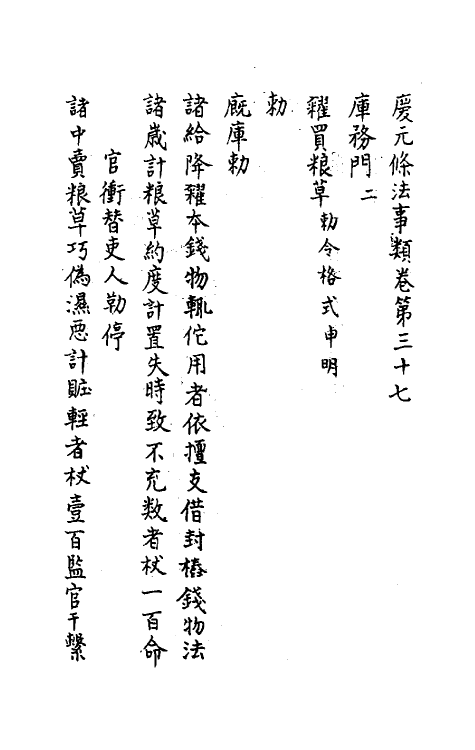 慶元條法事類卷第三十七
庫務門二
糴買粮草勅令格式申明
勅
廐庫勅
諸給降糴本錢物輒佗用者依擅支借封樁錢物法
諸歲計粮草約度計置失時致不充数者杖一百命
官衝替吏人勒停
諸中賣粮草巧偽濕惡計賍輕者杖壹百監官干繫